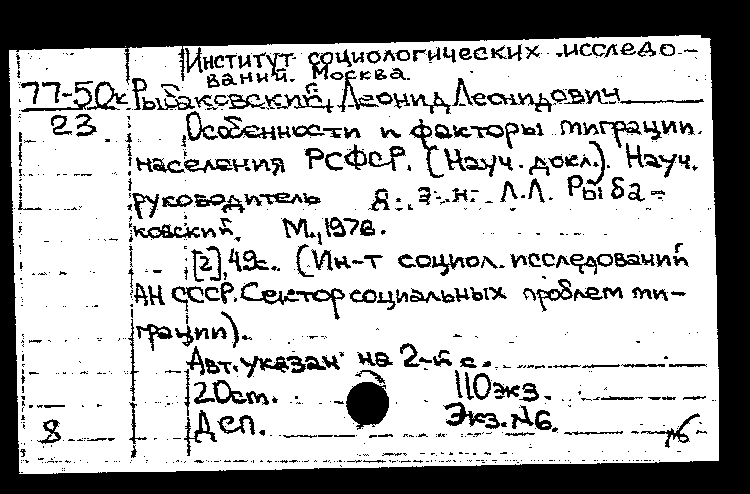 Институт социологических исследо-
ваний. Москва
77-50к Рыбаковский, Леонид Леонидович
23 Особенности и факторы миграции
населения РСФСР. (Науч. докл.). Науч.
руководитель д. э. н. Л.Л. Рыба-
ковский. М., 1976.
[2], 49с. (Ин-т социол. исследований
АН СССР. Сектор социальных проблем ми-
грации).
Авт. указан на 2-й с.
20см. 110экз.
8 Дсп. Экз. №6.